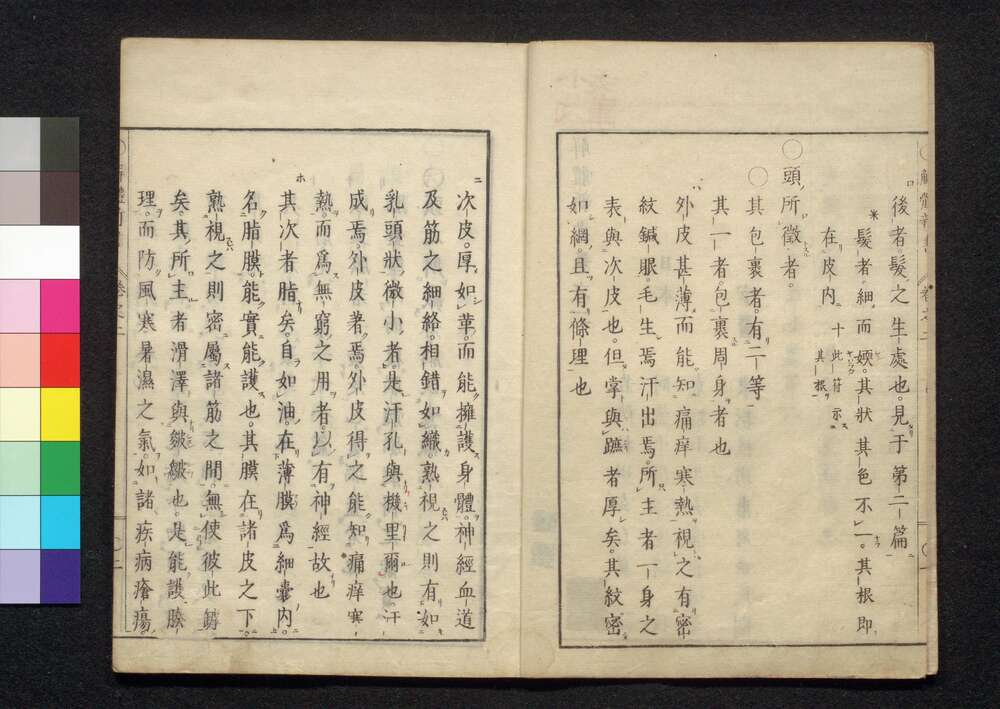 後者髮之生處也見于第二篇
髮者細而娞。其狀其色不一。其根即
在皮内 十 此符示其根
〇頭所徵者。
〇其包裹者。有二等
其一者包裹周身者也
外皮甚薄而能知痛痒寒熱視之有密
紋鍼眼。毛生焉汗出焉所主者一身之
表與次皮也。但掌與蹠者厚矣。其紋密
如網且有條理也
次皮。厚如革。而能擁護身體。神經血道
及筋之細絡。相錯如織。熟視之則有如
乳頭狀微小者。是汗孔與機里爾也。汗
成焉。外皮著焉。外皮得之能知痛痒寒
熱。而爲無窮之用者。以有神經故也
其次者脂矣。自如油。在薄膜爲細囊内。
名脂膜。能實能護也。其膜在諸皮之下。
熟視之則密屬諸筋之間。無使彼此
矣。其所主者滑澤與皺皴也。是能護腠
理。而防風寒暑濕之氣。如諸疾病瘡瘍。